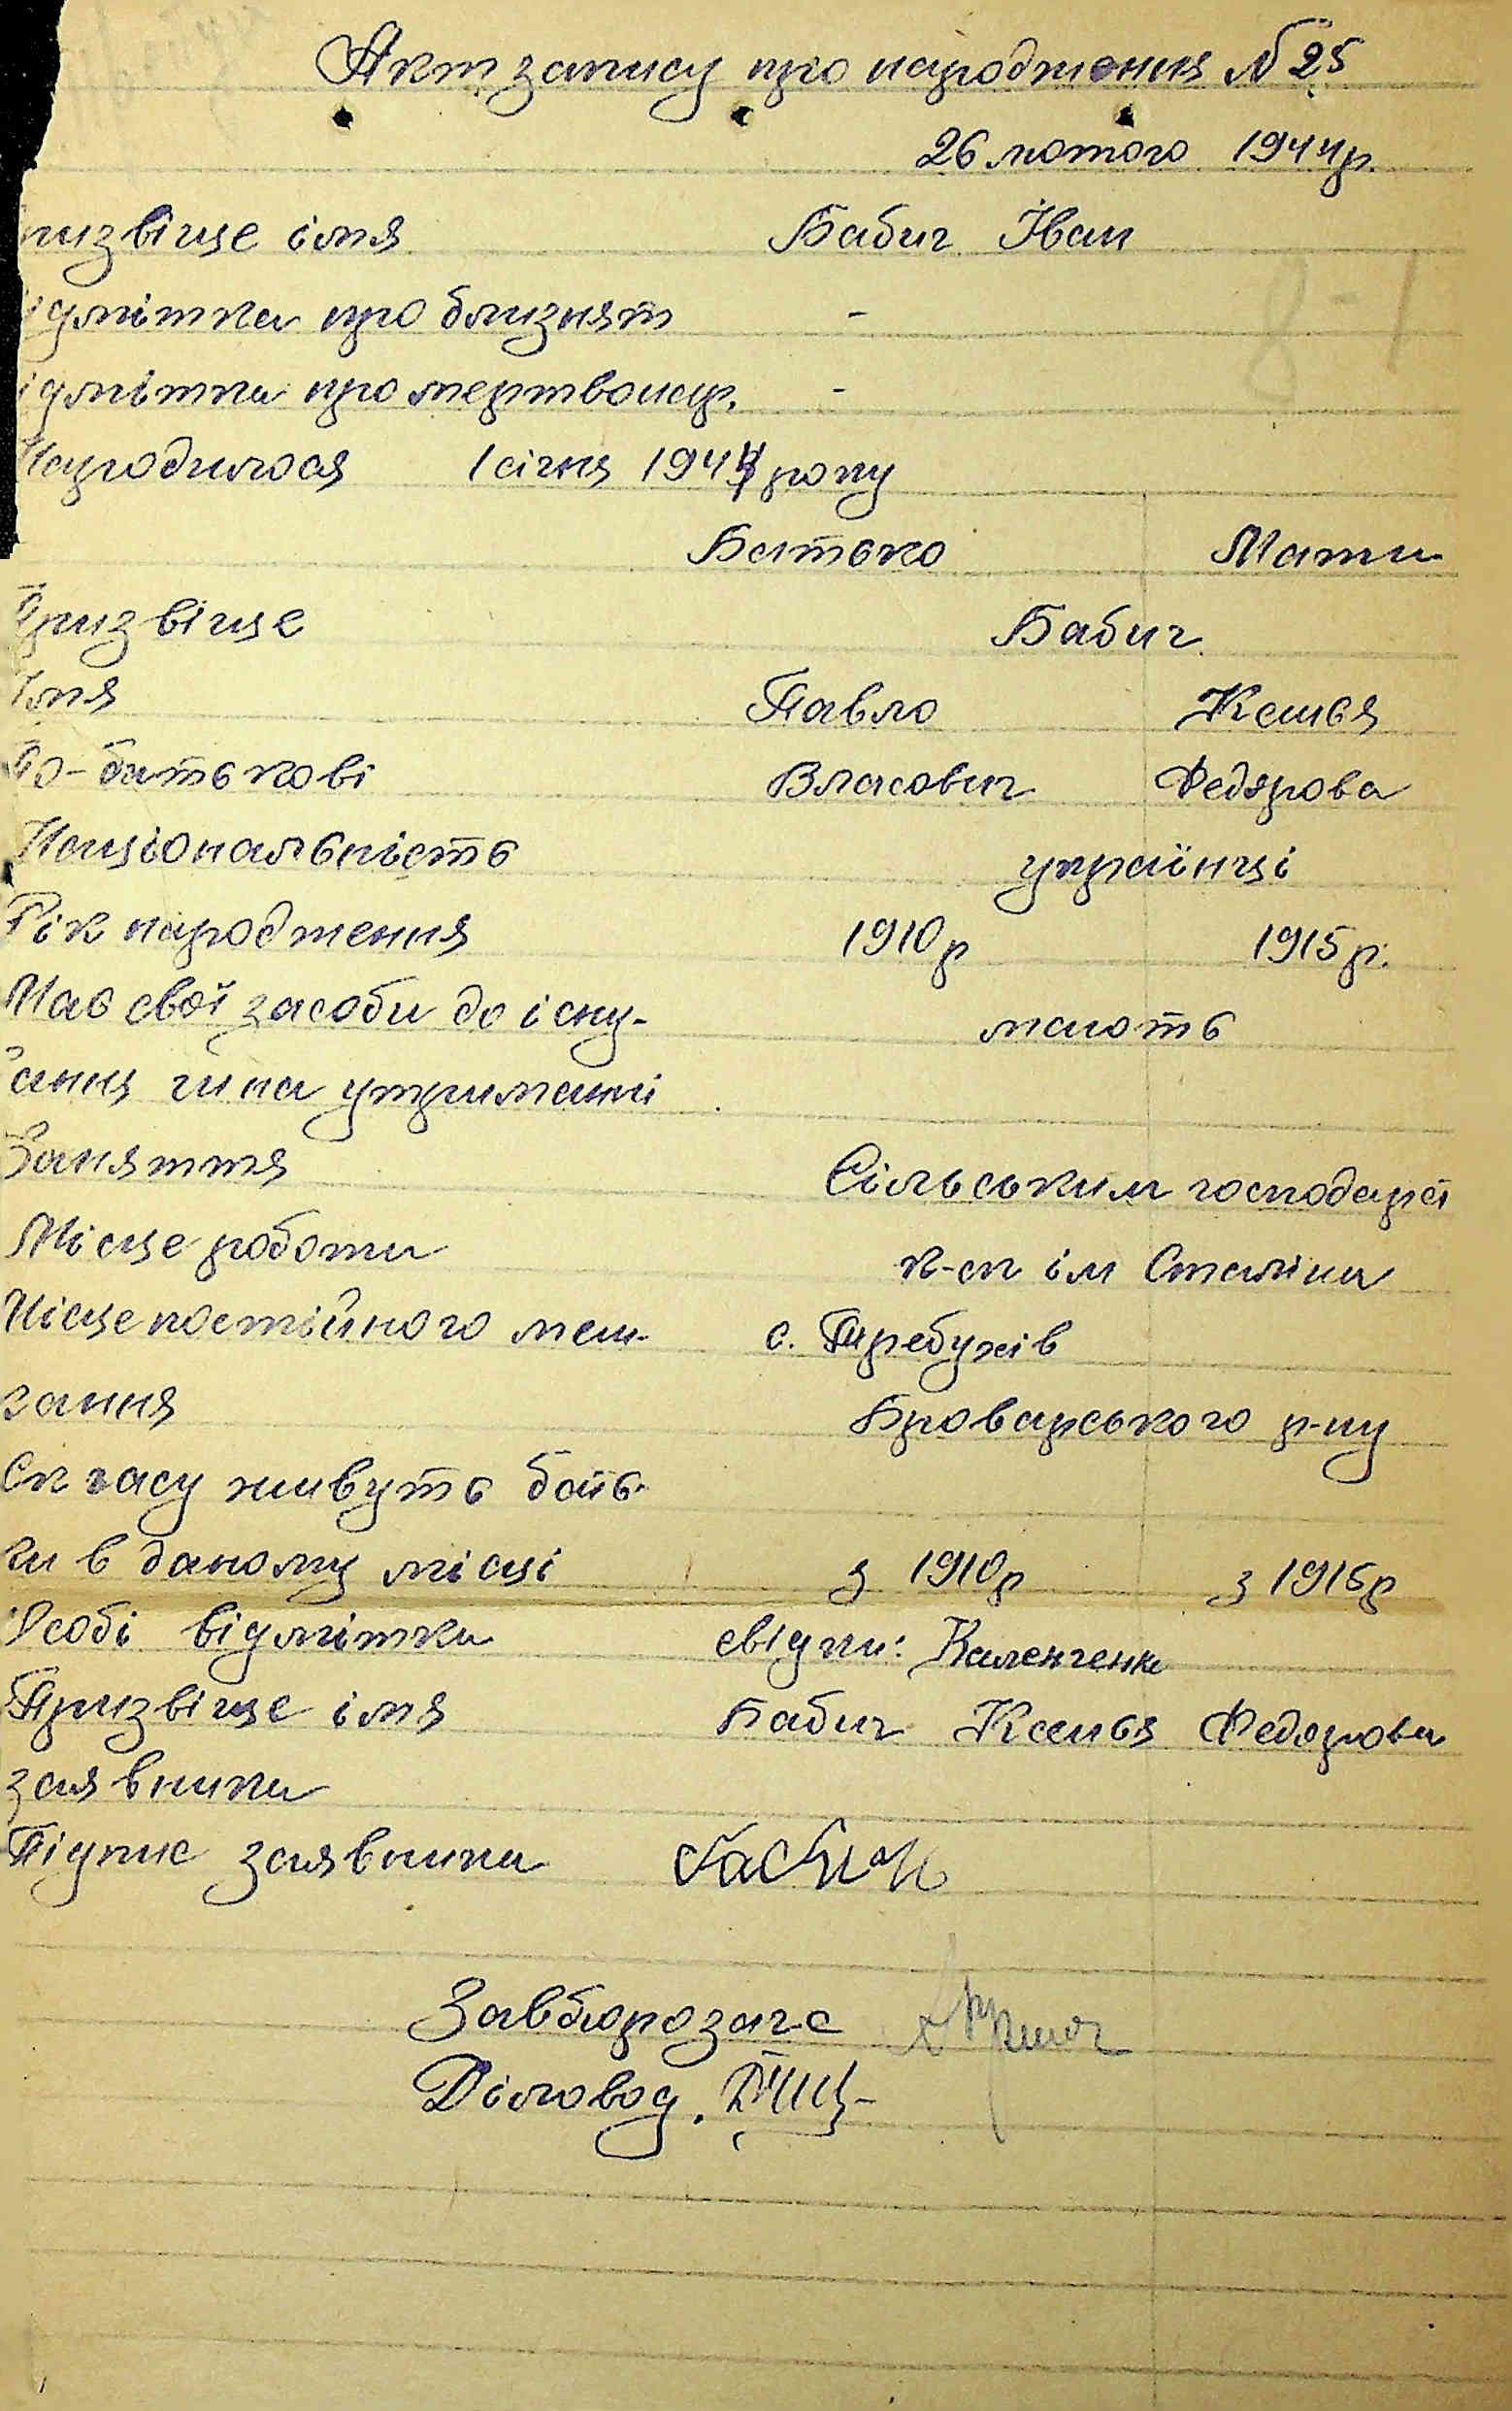 Акт запису про народження № 25
26 лютого 1944 р.
ризвіще імя Бабич Іван
ідмітка про близнят -
ідмітка про мертвонар. -
Народилося 1 січня 1944 року
Батько Мати
Призвіще Бабич
Імя Павло Ксенья
По-батькові Власович Федорова
Національність українці
Рік народження 1910 р 1915 р.
Має свої засоби до існу- мають
вання чи на утриманні
Заняття Сільським господарст
Місце роботи к-сп ім Сталіна
Місце постійного меш- с. Требухів
кання Броварського р-ну
Ск часу живуть бать-
ки в даному місці з 1910 р з 1915 р
Особі відмітки свідки: Каленченк
Призвіще імя Бабич Ксенья Федорова
заявника
Підпис заявника
Завбюрозагс
Діловод.